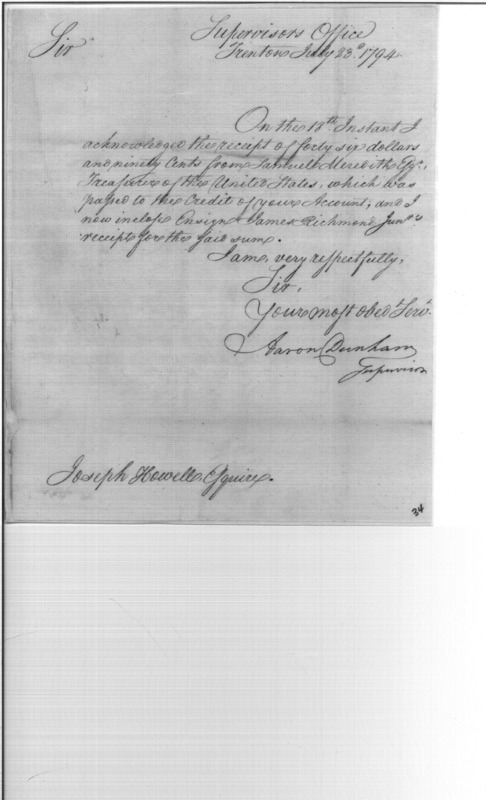 Supervisors Office
Sir Trenton July 23d. 1794
On the 18th. Instant I
acknowledged the receipt of forty six dollars
and ninety Cents from Samuel Meredith Esqr.
Treasurer of the United States, which was
passed to the Credit of your Account, and I
now inclose Ensign James Richmond Junrs.
receipt for the said sum.
I am, very respectfully,
Sir,
Your most obedt. Servt.
Aaron Dunham
Supervisor
Joseph Howell Esquire.
34